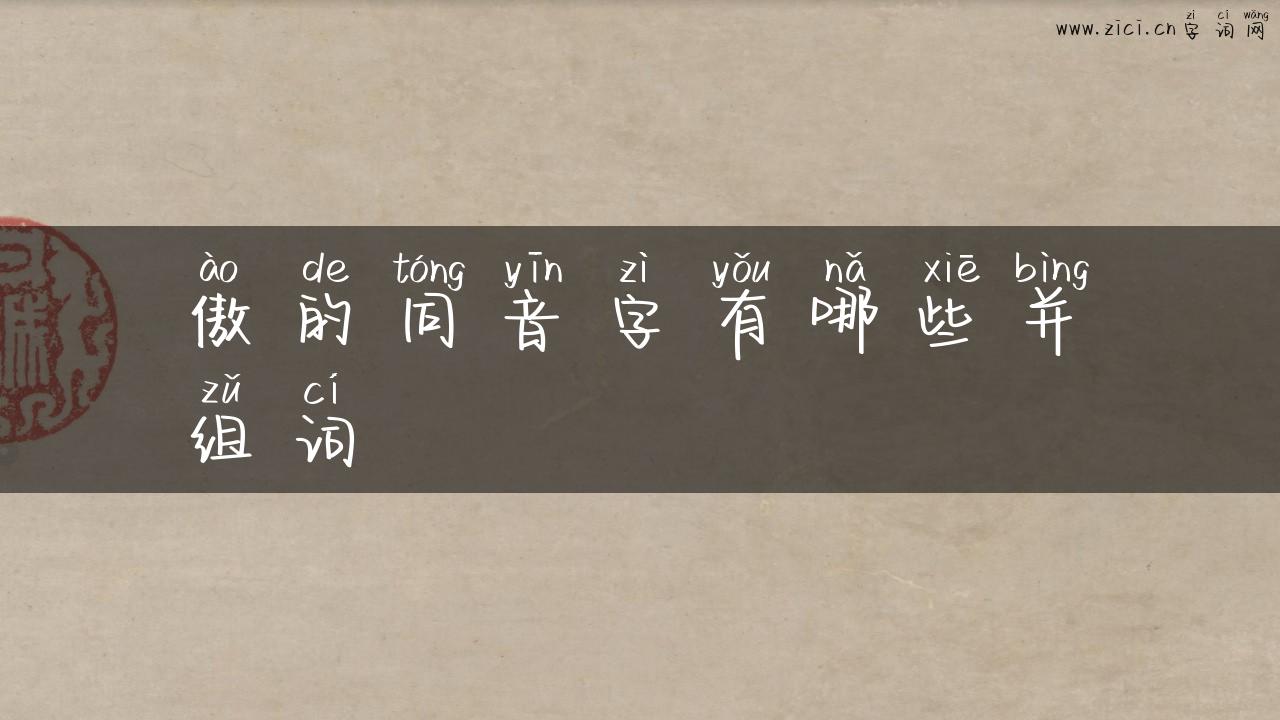 zì cí wǎng
www.zici.cn 字词网
ào de tóng yīn zì yǒu nǎ xiē bìng
傲的同音字有哪些并
zǔ cí
组词